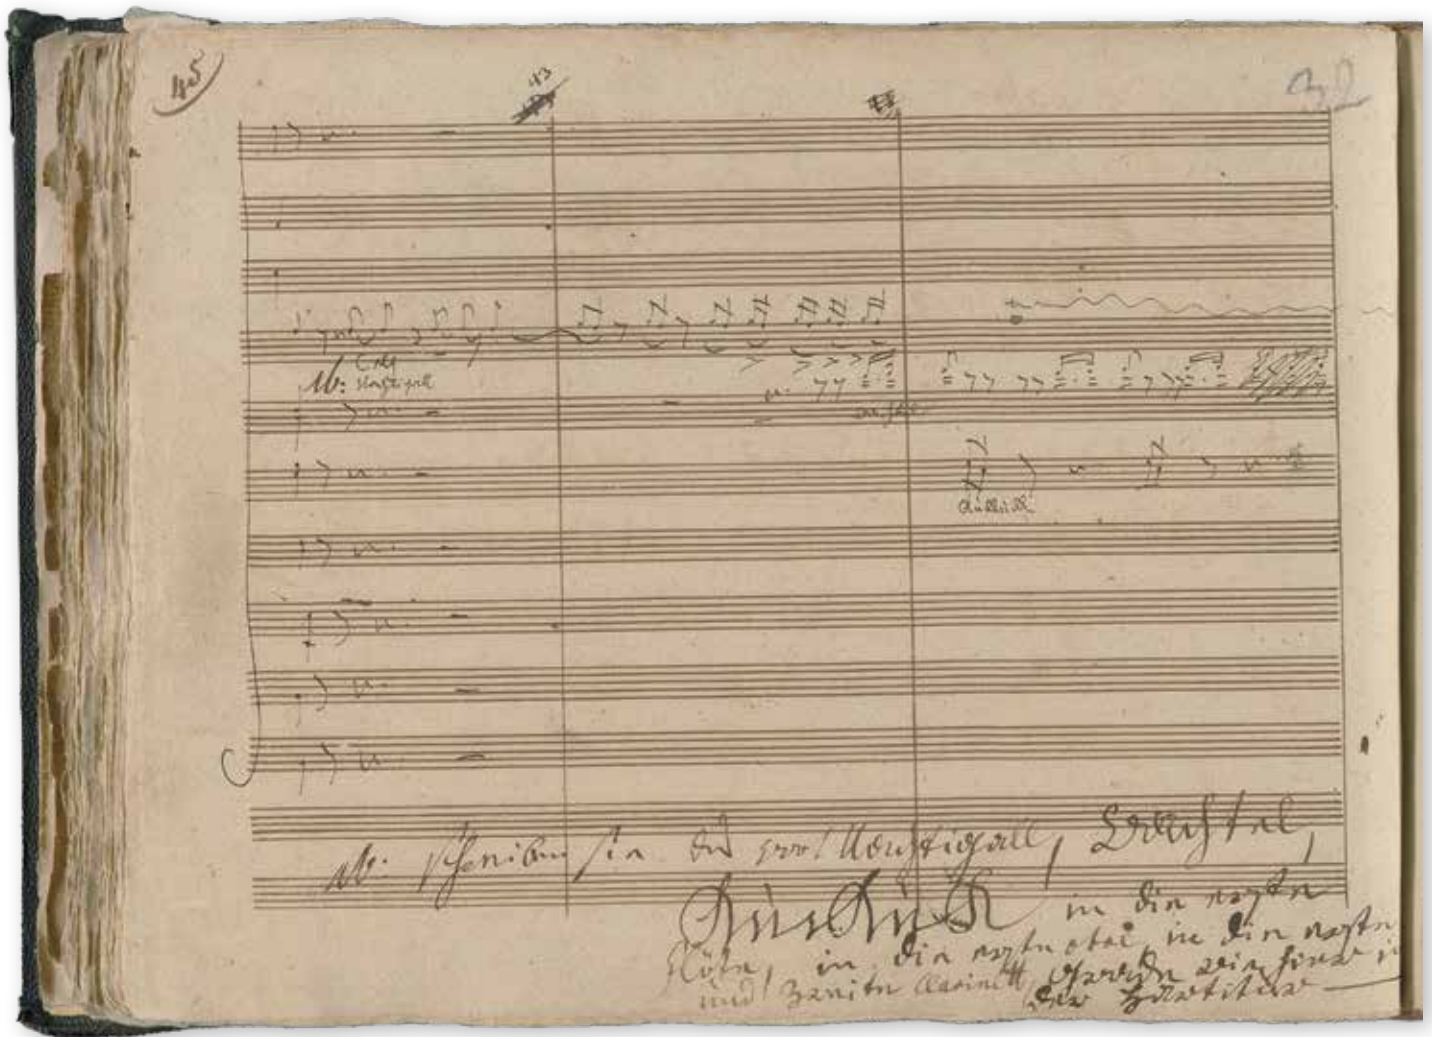 45
43
Nb: Nachtigall
Kukuk
Nb: schreiben sie das wort Nachtigall, Wachtel,
Kukuk in die erste
Flöte, in die erste oboe, in die erste
und zweite Clarinett, gerade wie hier in
der Partitur